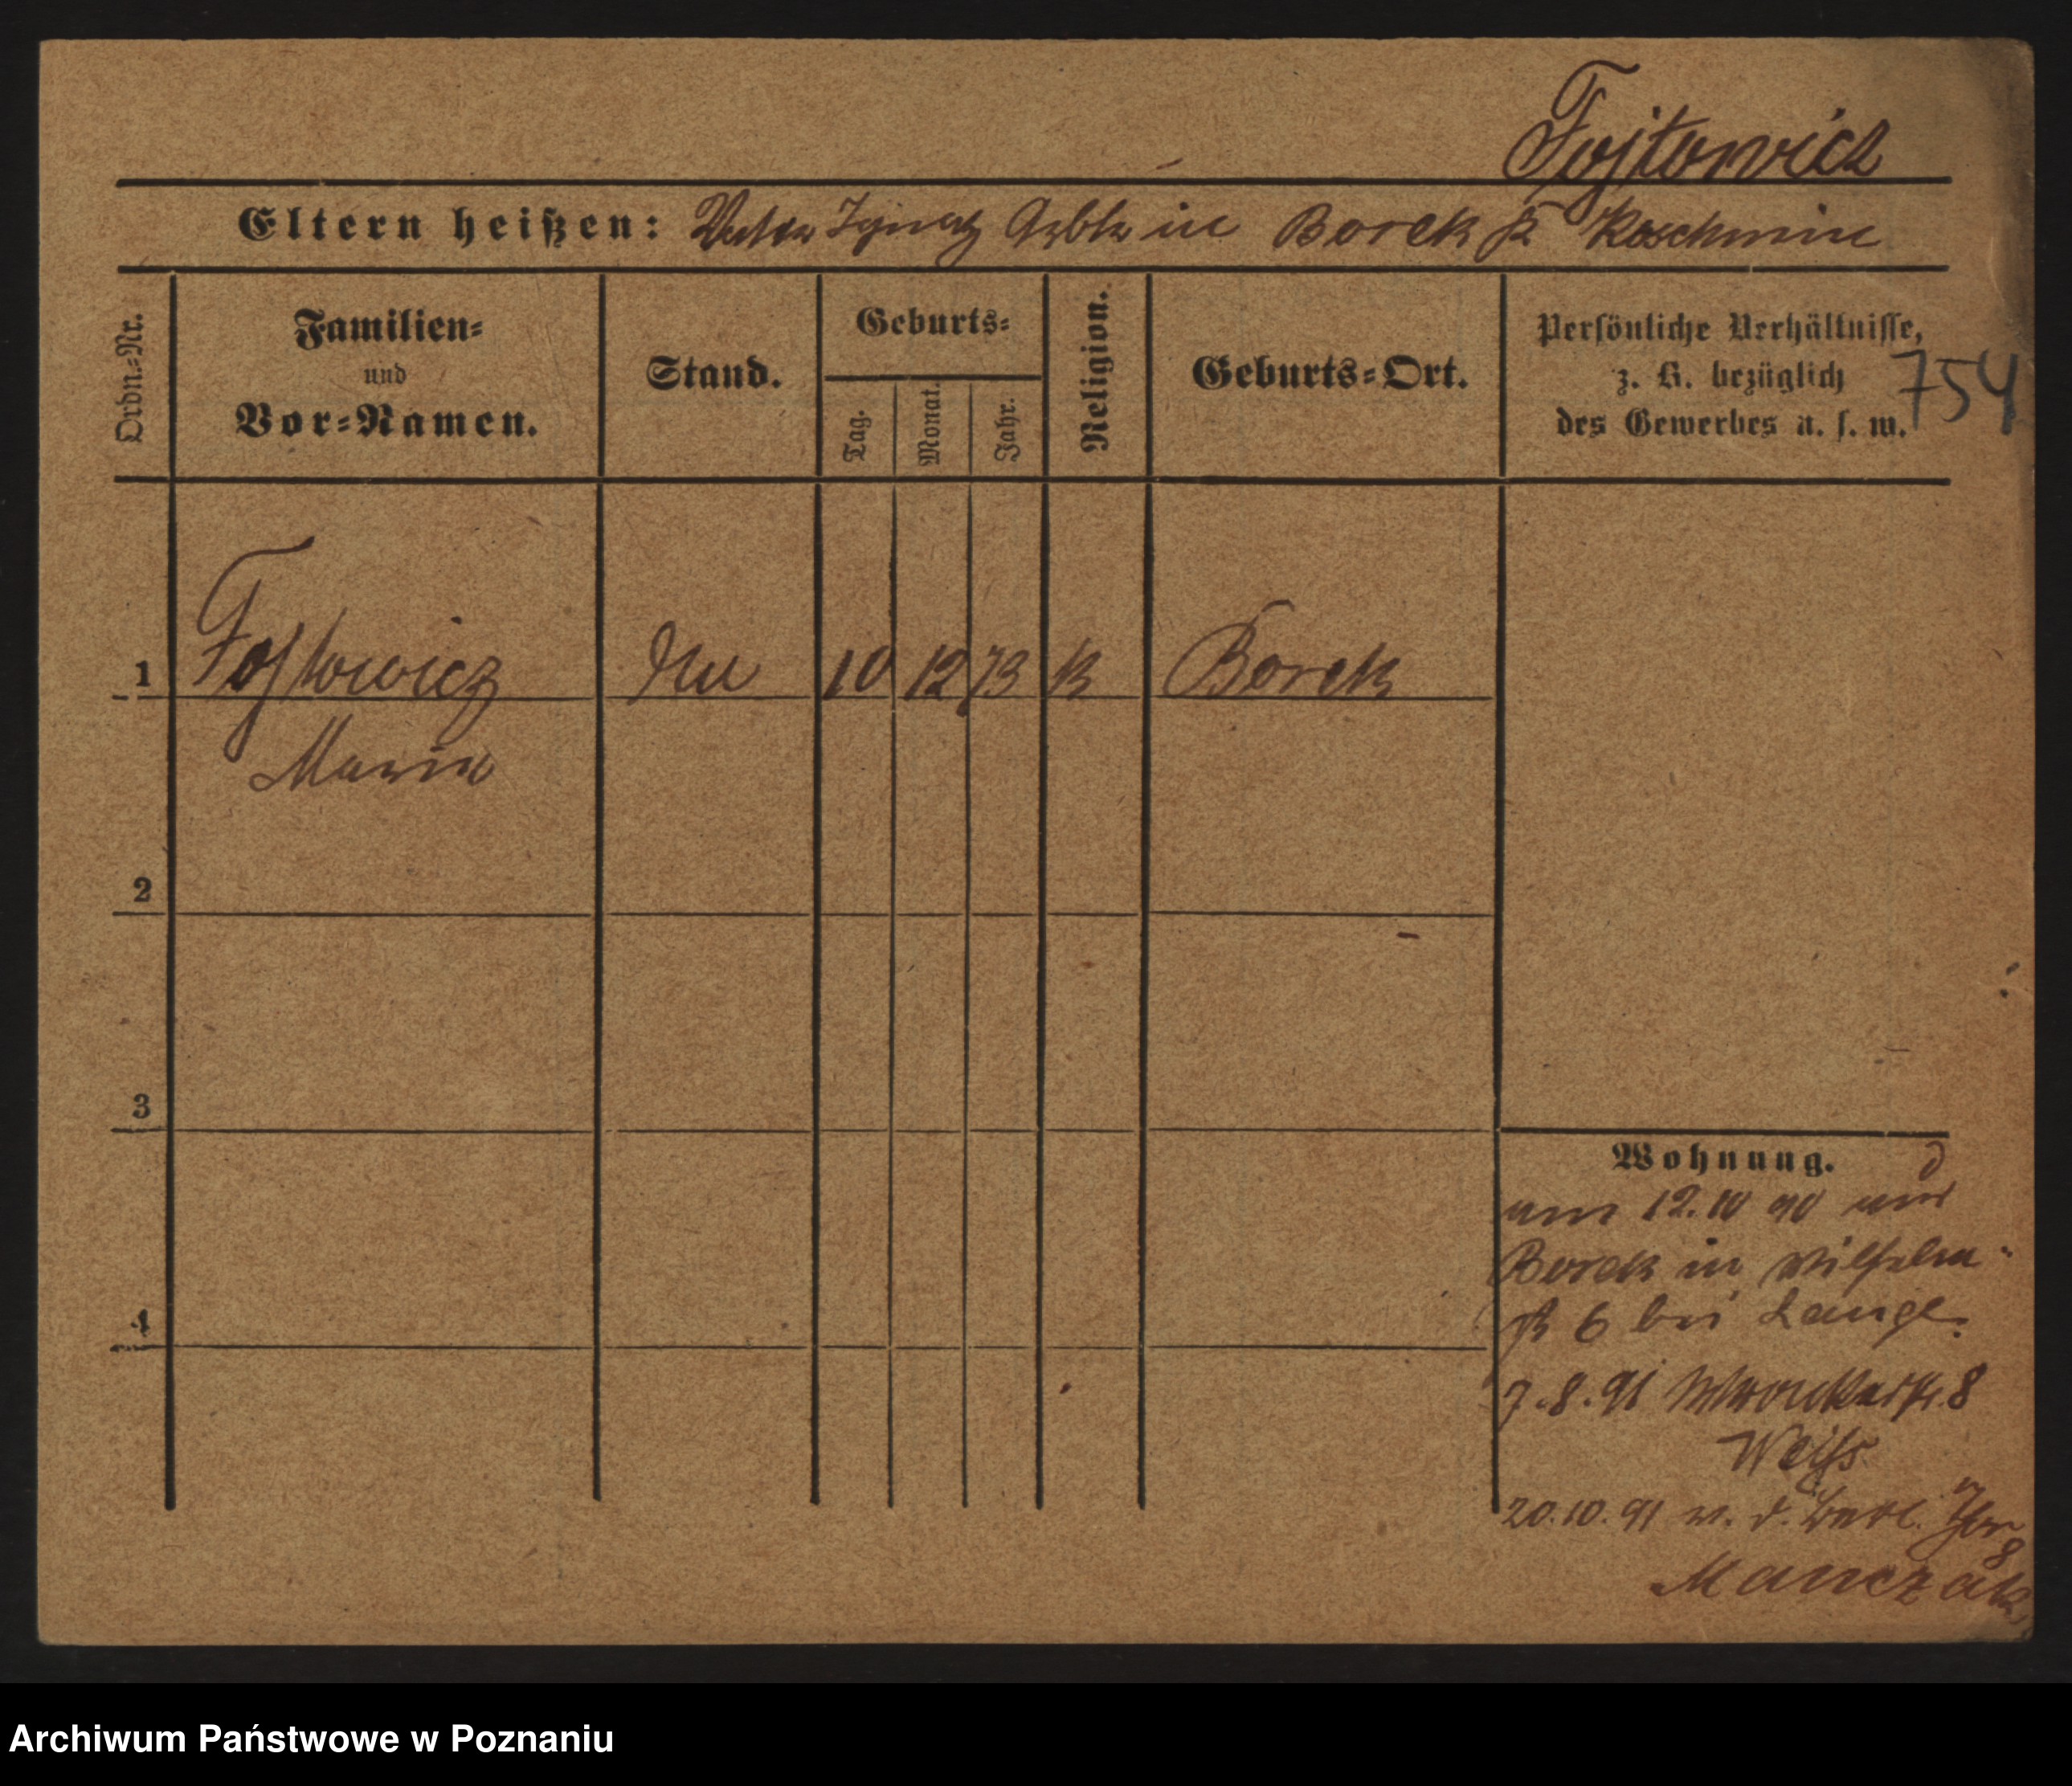 Fojtowicz
Eltern heißen: Vater Ignatz Arbtr in Borek Kr Koschmin
Ordn.=Nr.
Familien=
und
Vor=Namen.
Stand.
Geburts=
Tag.
Monat.
Jahr.
Religion.
Geburts=Ort.
Persönliche Verhältnisse,
z. B. bezüglich
des Gewerbes u. s. w.
754
1 Fojtowicz 10 12 73 K Borek
Maria
2
3
4
Wohnung.
am 12.10 90 aus
Borek in Wilhelm
str 6 bei Lange.
7.8.91 Wronkerstr. 8
Weiss
20.10.91 v. d. Berl. Thor 8
Manczak
Archiwum Państwowe w Poznaniu